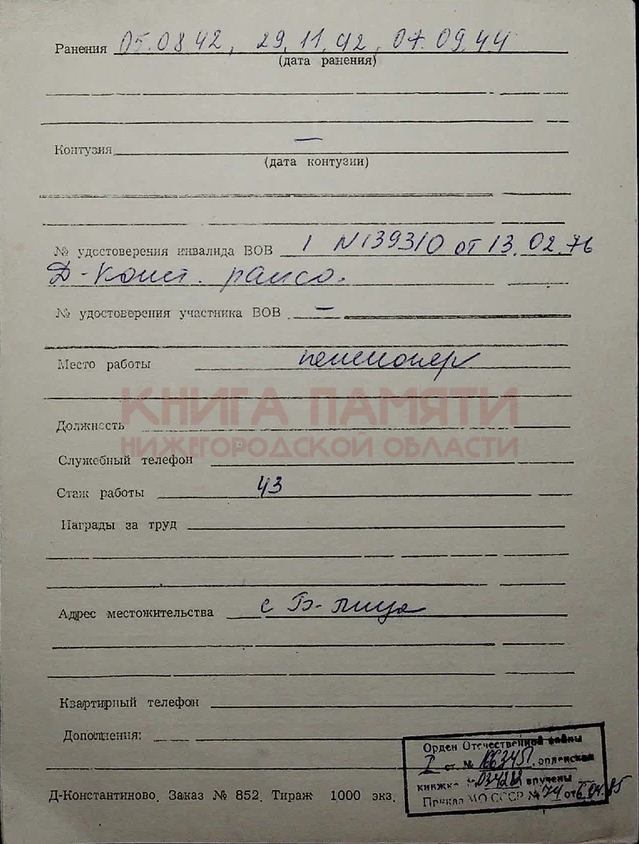 Ранения 05.08.42, 29.11.42, 07.09.44
(дата ранения)
Контузия —
(дата контузии)
№ удостоверения инвалида ВОВ 1 N139310 от 13.02.76
Д-Конст. райсо.
№ удостоверения участника ВОВ —
Место работы пенсионер
КНИГА ПАМЯТИ
Должность
НИЖЕГОРОДСКОЙ ОБЛАСТИ
Служебный телефон
Стаж работы 43
Награды за труд
Адрес местожительства с Б-Пица
Квартирный телефон
Дополнения:
Орден Отечественной войны
I ст. № орденская
книжка № вручены
Приказ МО СССР № 74 от 6.04.85
Д-Константиново. Заказ № 852. Тираж 1000 экз.